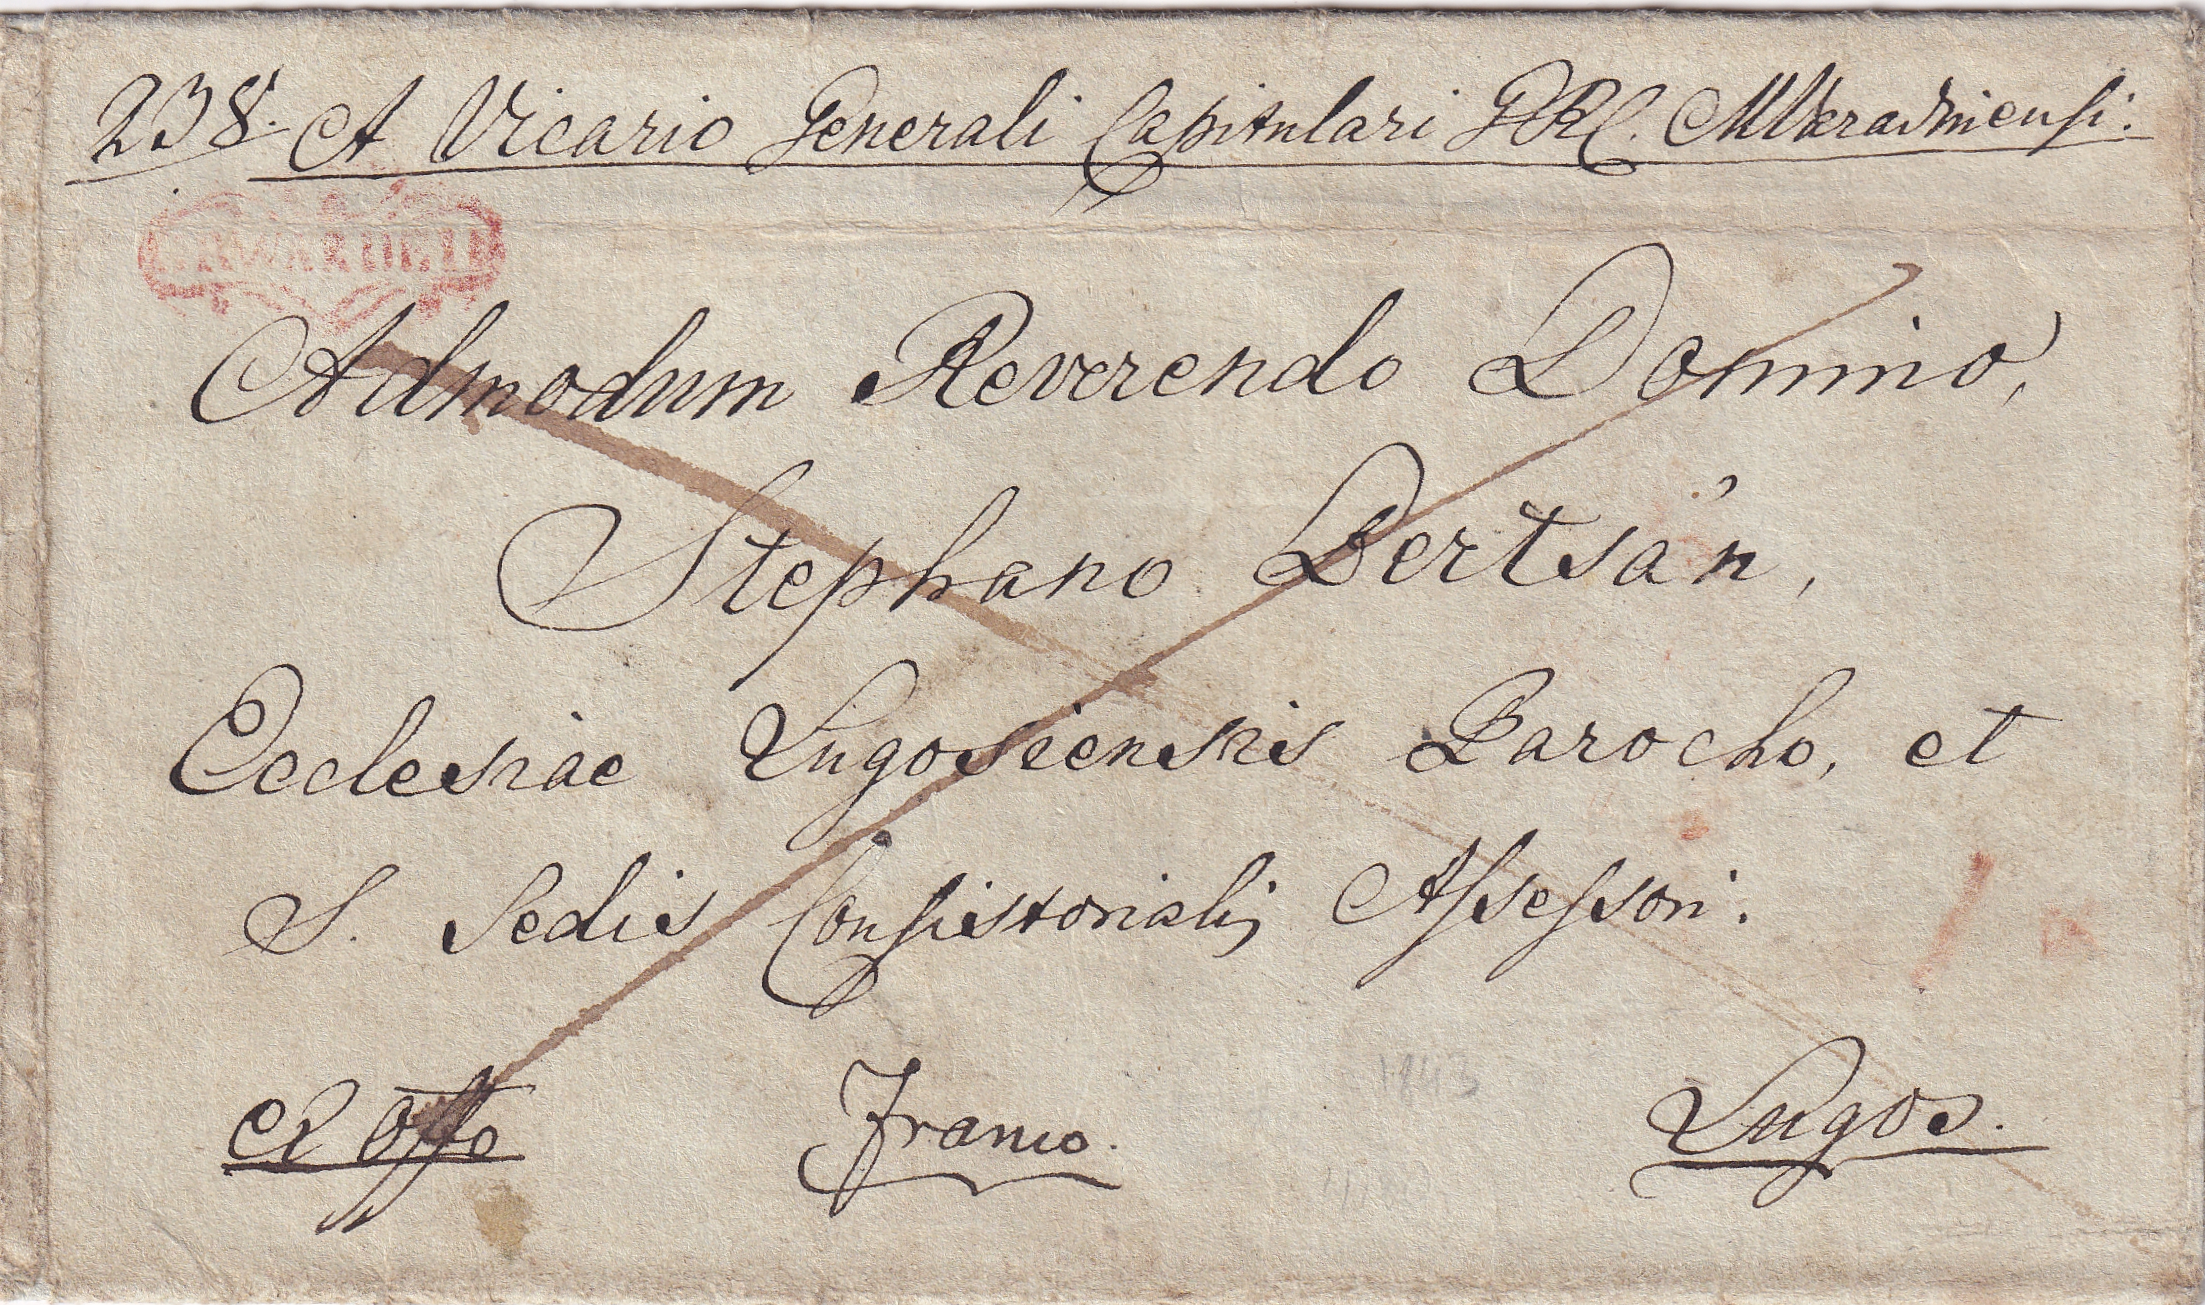 238. A Vicario Generali Capitulari GRC. MVaradinensi.
Admodum Reverendo Domino,
Stephano Bertsán,
Ecclesiae Lugosiensis Parocho, et
S. Sedis Consistorialis Assessori.
ex Offo Franco. Lugos.
1843